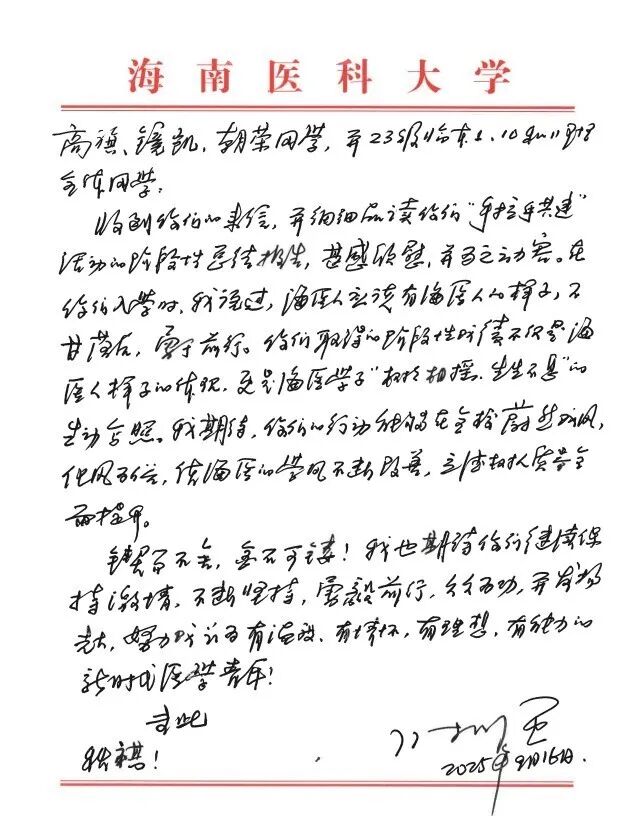 海南医科大学
高旗、锃凯、朝荣同学,并23级临床8、10和11班
全体同学:
收到你们的来信,并细细品读你们"手拉手共进"
活动的阶段性总结报告,甚感欣慰,并为之动容。在
你们入学时,我说过,海医人应该有海医人的样子,不
甘落后,勇于前行。你们取得的阶段性成绩不仅是海
医人样子的体现,更是海医学子"树树相摇、生生不息"的
生动写照。我期待,你们的行动能够在全校蔚然成风,
化风为俗,使海医的学风不断改善,立德树人质量全
面提升。
锲而不舍,金石可镂!我也期待你们继续保
持激情,不断坚持,勇毅前行,久久为功,并发扬
光大,努力成为有温度、有情怀、有理想、有能力的
新时代医学青年!
专此
秋祺!
2025年9月16日.